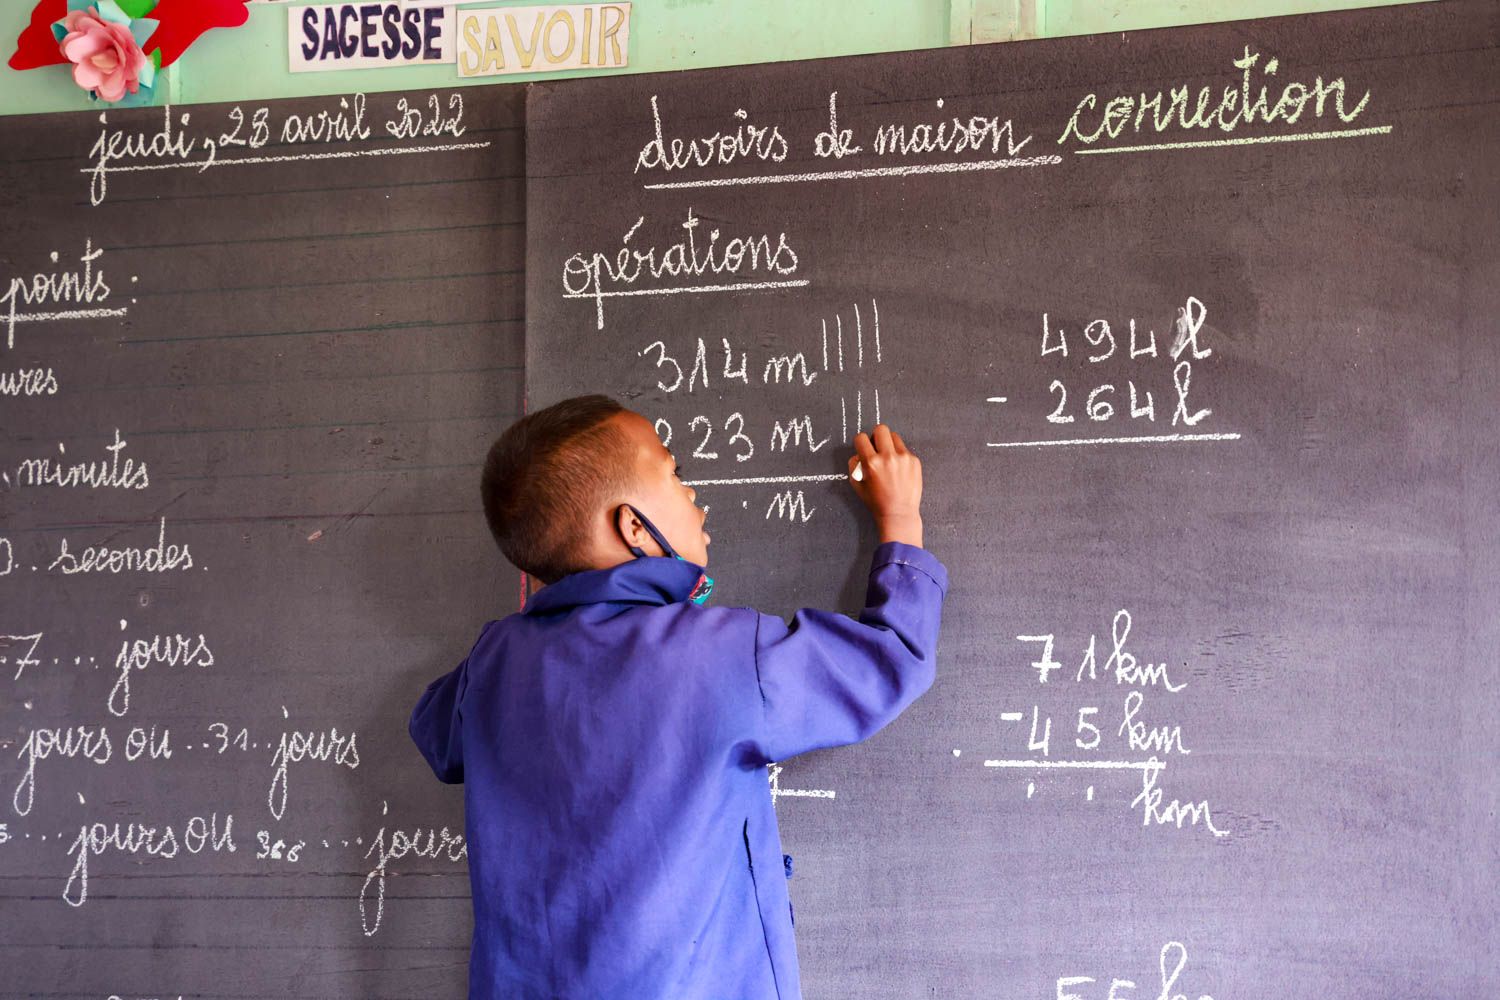 SAGESSE SAVOIR
jeudi, 28 avril 2022
points :
ures
minutes
secondes.
7 ... jours
jours ou ..31.. jours
... jours ou 366 ... jours
devoirs de maison correction
opérations
314 m
223 m
. . m
494 l
- 264 l
71 km
- 45 km
. . km
55 k